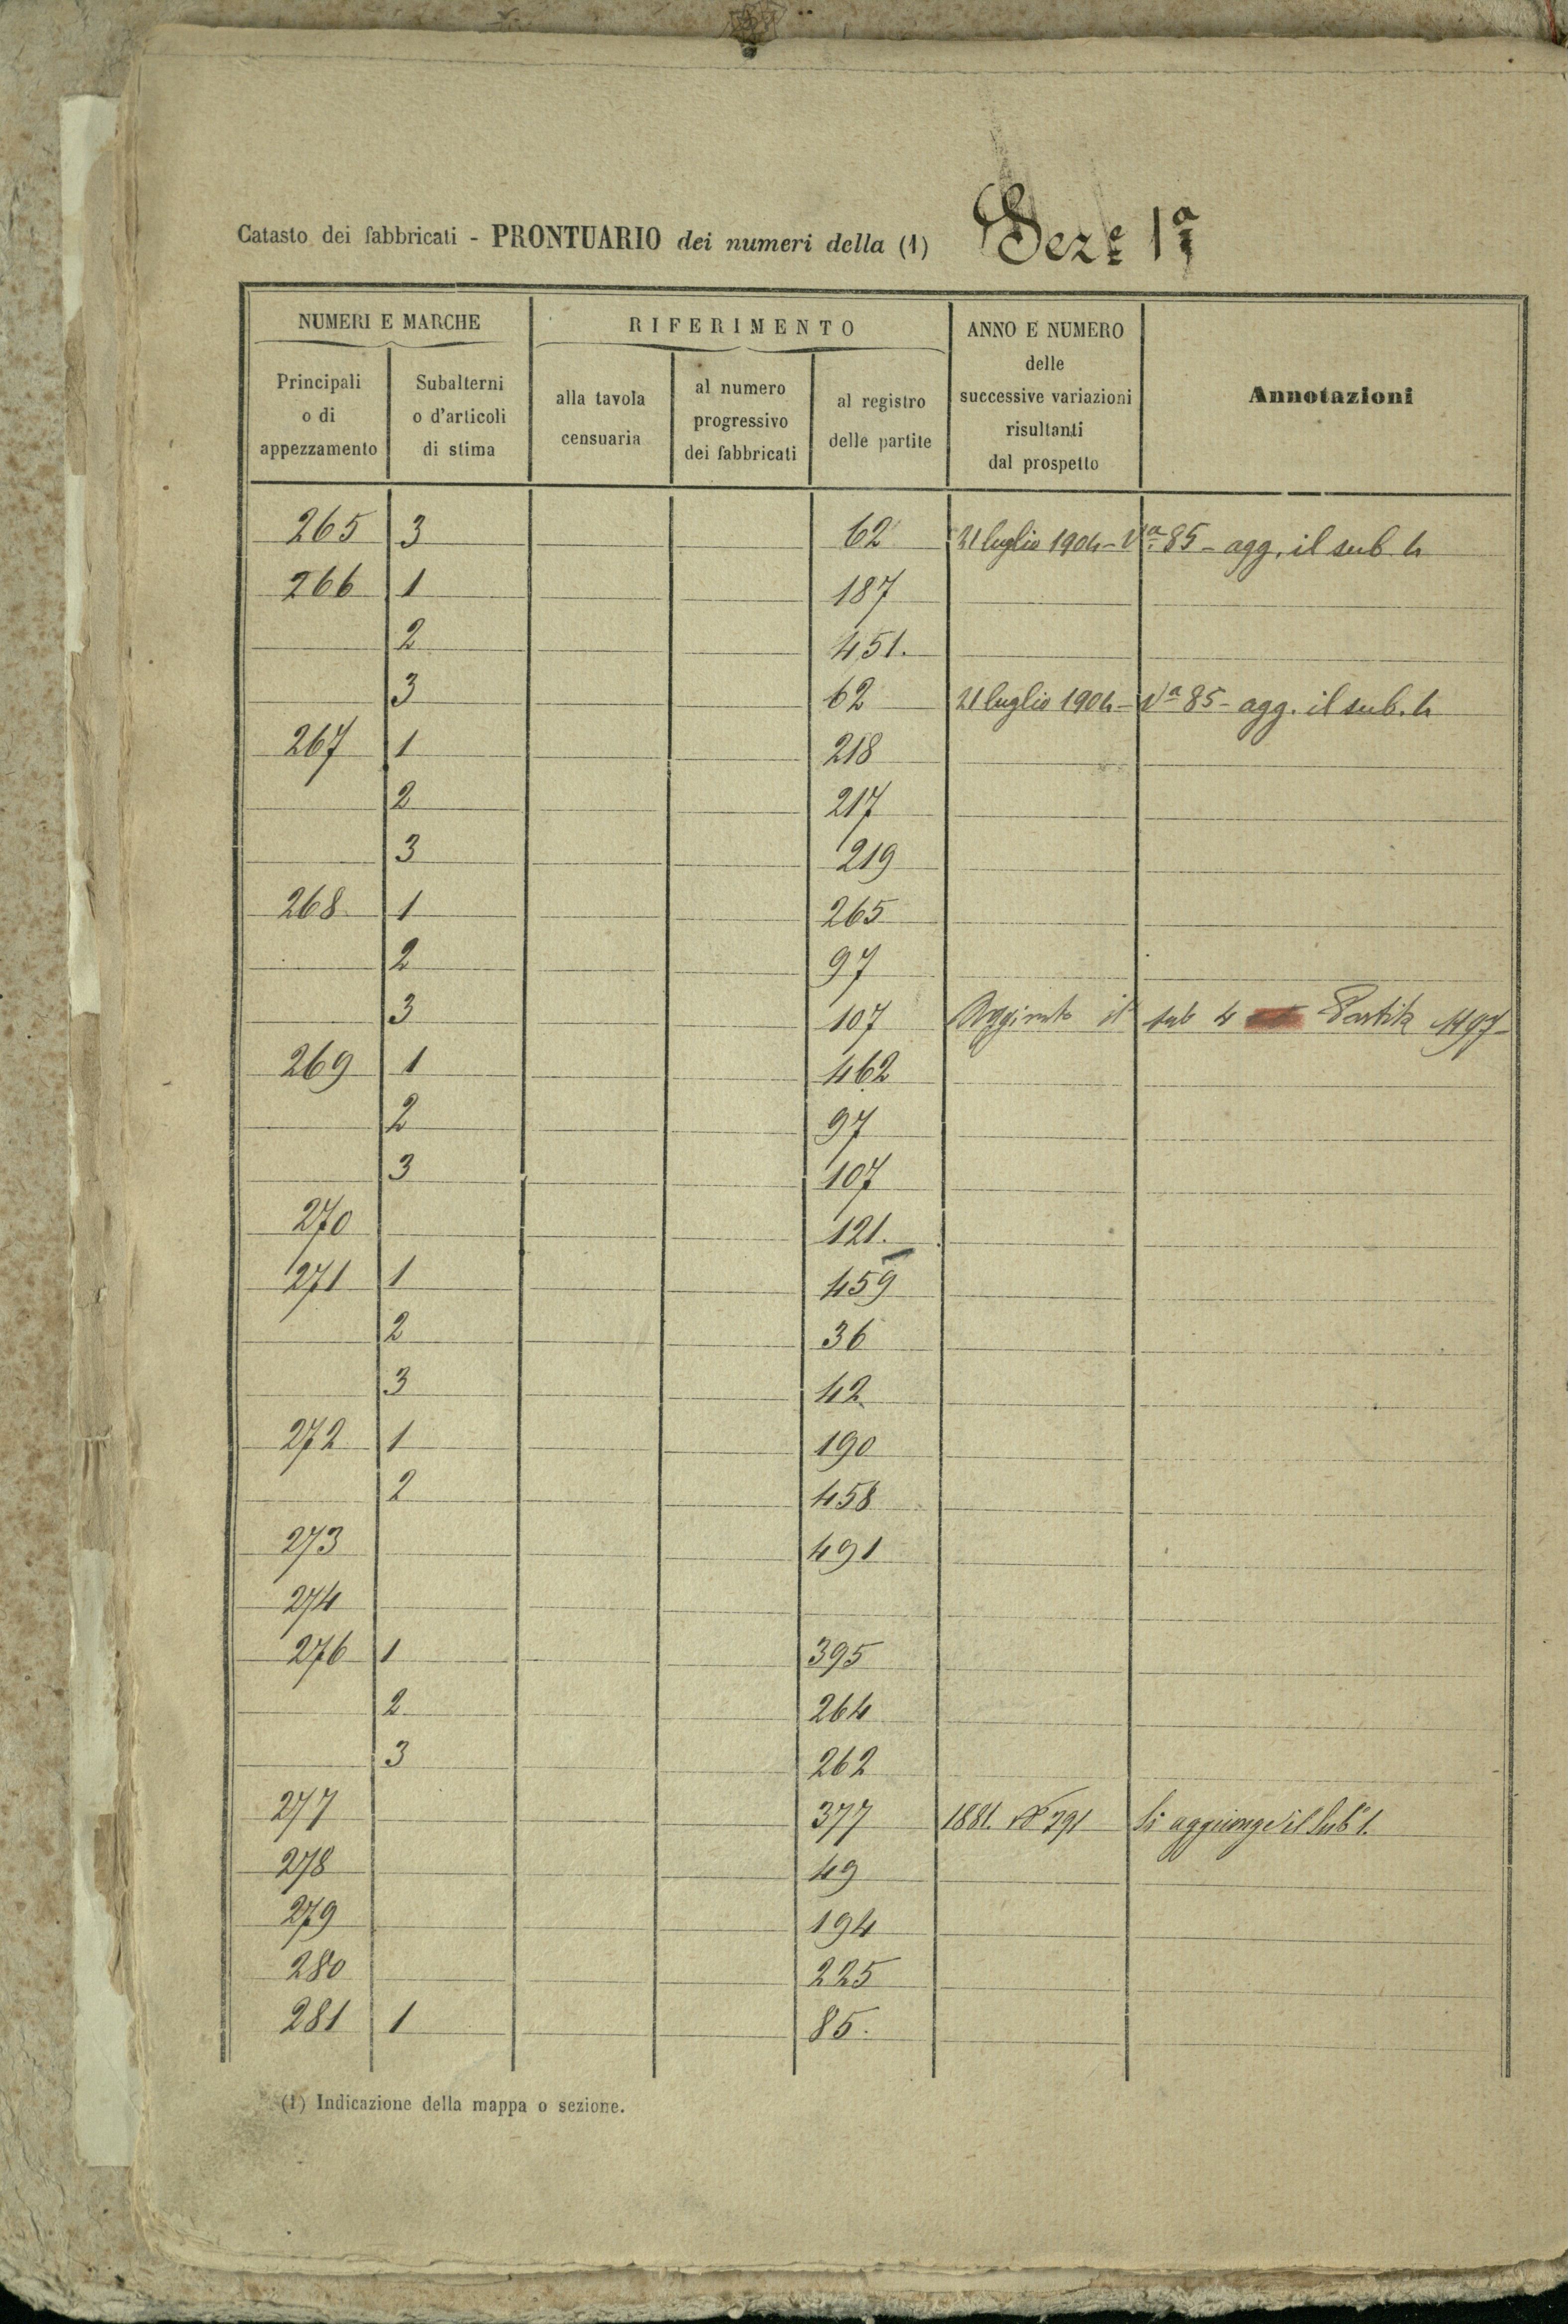 Catasto dei fabbricati - PRONTUARIO dei numeri della (1) Sez.e 1ª
NUMERI E MARCHE
RIFERIMENTO
ANNO E NUMERO
delle
successive variazioni
risultanti
dal prospetto
Annotazioni
Principali
o di
appezzamento
Subalterni
o d'articoli
di stima
alla tavola
censuaria
al numero
progressivo
dei fabbricati
al registro
delle partite
265 3 62 21 luglio 1904 - Vª 85 - agg. il sub 4
266 1 187
2 451.
3 62 21 luglio 1904 - Vª 85 - agg. il sub. 4
267 1 218
2 217
3 219
268 1 265
2 97
3 107 Aggiunto il sub 4 Partita 1497
269 1 462
2 97
3 107
270 121.
271 1 459
2 36
3 42
272 1 190
2 458
273 491
274
276 1 395
2 264
3 262
277 377 1881. Nº 291 Si aggiunge il Subº 1.
278 49
279 194
280 225
281 1 85.
(1) Indicazione della mappa o sezione.